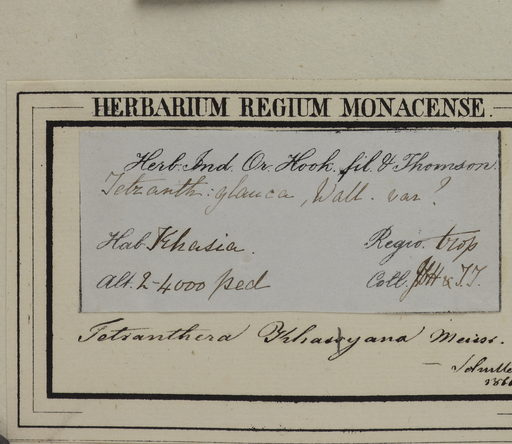 HERBARIUM REGIUM MONACENSE.
Herb. Ind. Or. Hook. fil. & Thomson.
Tetranth: glauca, Wall. var?
Hab. Khasia. Regio. trop
Alt. 2-4000 ped Coll. JDH & T.T.
Tetranthera Khasyana Meissn.
186